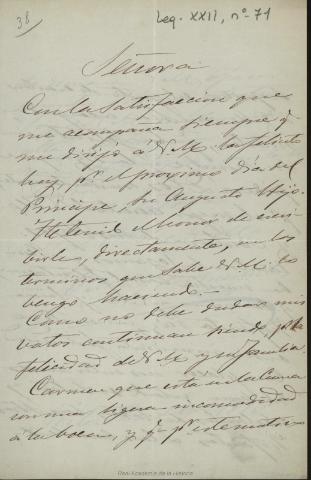 38
Leg. XXII, nº 71
Señora
Con la satisfaccion que
me acompaña siempre q.
me dirijo á V.M. la felicito
hoy p.r el proximo dia del
Principe, Su Augusto Hijo.
He tenido el honor de escri
birle, directamente, en los
terminos que sabe V.M. lo
vengo haciendo.
Como no debe dudar mis
votos continuan siendo p.r la
felicidad de V.M. y su familia.
Carmen que está en la Cama
con una ligera incomodidad
á la boca, y q.e p.r este motivo
Real Academia de la Historia